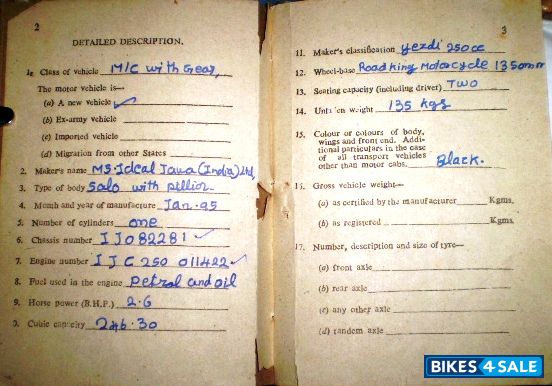 2
DETAILED DESCRIPTION.
1. Class of vehicle M/C with Gear,
The motor vehicle is—
(a) A new vehicle ✓
(b) Ex-army vehicle
(c) Imported vehicle
(d) Migration from other States
2. Maker's name M/S. Ideal Jawa (India) Ltd,
3. Type of body Solo with pillion.
4. Month and year of manufacture Jan. 95
5. Number of cylinders one
6. Chassis number IJ082281 ✓
7. Engine number IJC 250 011422 ✓
8. Fuel used in the engine petrol and oil
9. Horse power (B.H.P.) 2.6
9. Cubic capacity 246.30
3
11. Maker's classification yezdi 250cc
12. Wheel-base Roadking Motorcycle 1350mm
13. Seating capacity (including driver) TWO
14. Unladen weight 135 kgs
15. Colour or colours of body,
wings and front end. Addi-
tional particulars in the case
of all transport vehicles
other than motor cabs. Black.
16. Gross vehicle weight—
(a) as certified by the manufacturer Kgms.
(b) as registered Kgms.
17. Number, description and size of tyre—
(a) front axle
(b) rear axle
(c) any other axle
(d) tandem axle
BIKES4SALE